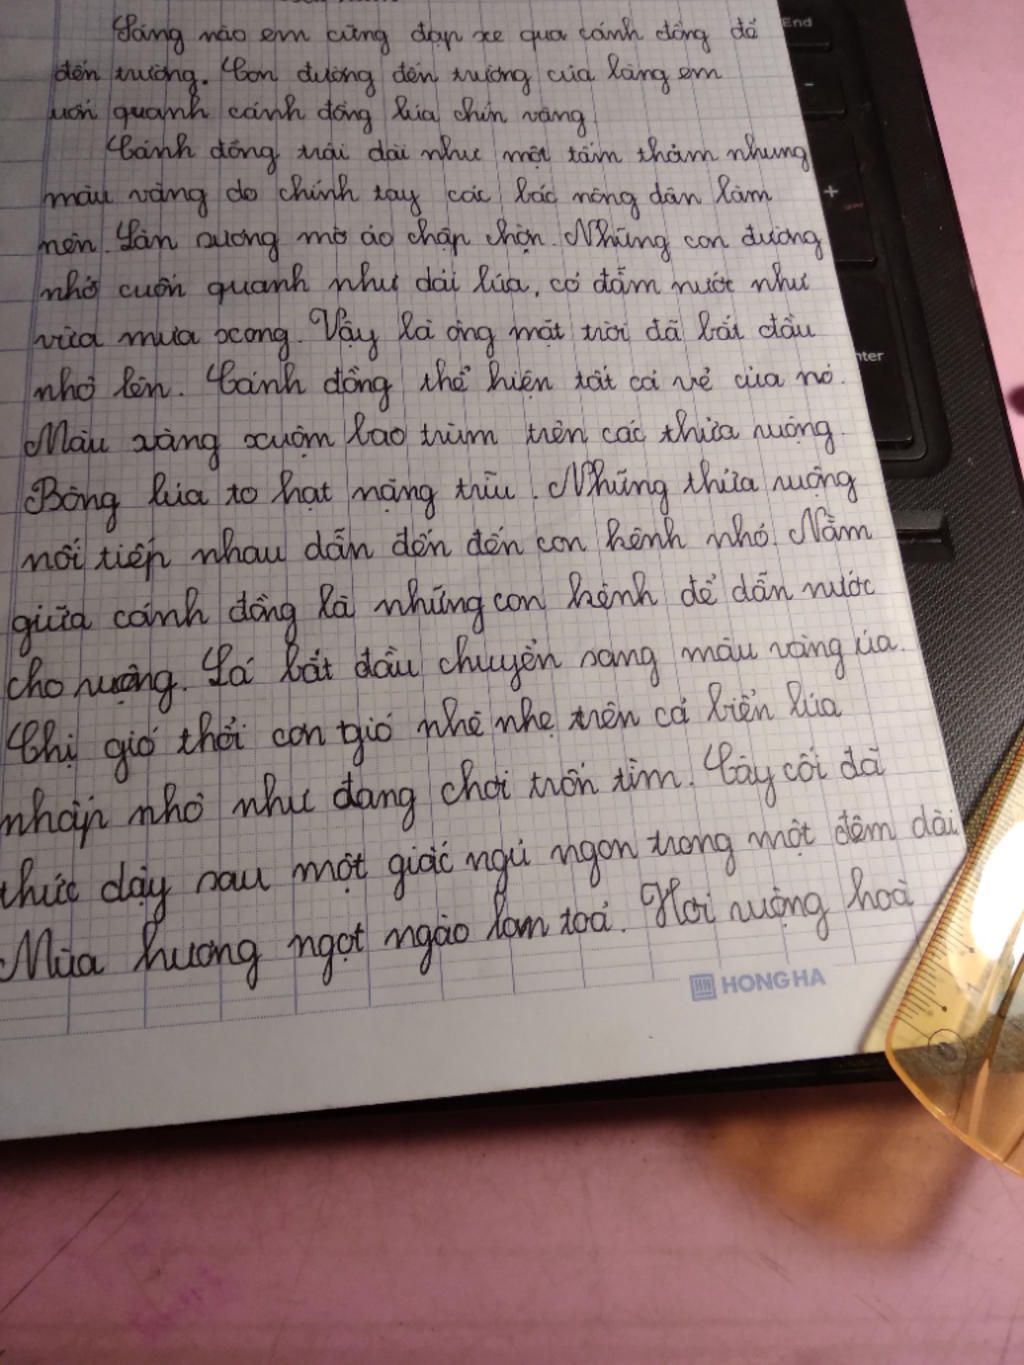 Sáng nào em cũng đạp xe qua cánh đồng để
đến trường. Con đường đến trường của làng em
uốn quanh cánh đồng lúa chín vàng.
Cánh đồng trải dài như một tấm thảm nhung
màu vàng do chính tay các bác nông dân làm
nên. Làn sương mờ ảo chập chờn. Những con đường
nhỏ cuốn quanh như dải lúa, cỏ đẫm nước như
vừa mưa xong. Vậy là ông mặt trời đã bắt đầu
nhô lên. Cánh đồng thể hiện tất cả vẻ của nó.
Màu vàng xuộm bao trùm trên các thửa ruộng.
Bông lúa to hạt nặng trĩu. Những thửa ruộng
nối tiếp nhau dẫn đến đến con kênh nhỏ. Nằm
giữa cánh đồng là những con kênh để dẫn nước
cho ruộng. Lá bắt đầu chuyển sang màu vàng úa.
Chị gió thổi cơn gió nhè nhẹ trên cả biển lúa
nhấp nhô như đang chơi trốn tìm. Cây cối đã
thức dậy sau một giấc ngủ ngon trong một đêm dài
Mùa hương ngọt ngào lan toả. Hơi ruộng hoà
HONG HA
End
-
+
nter